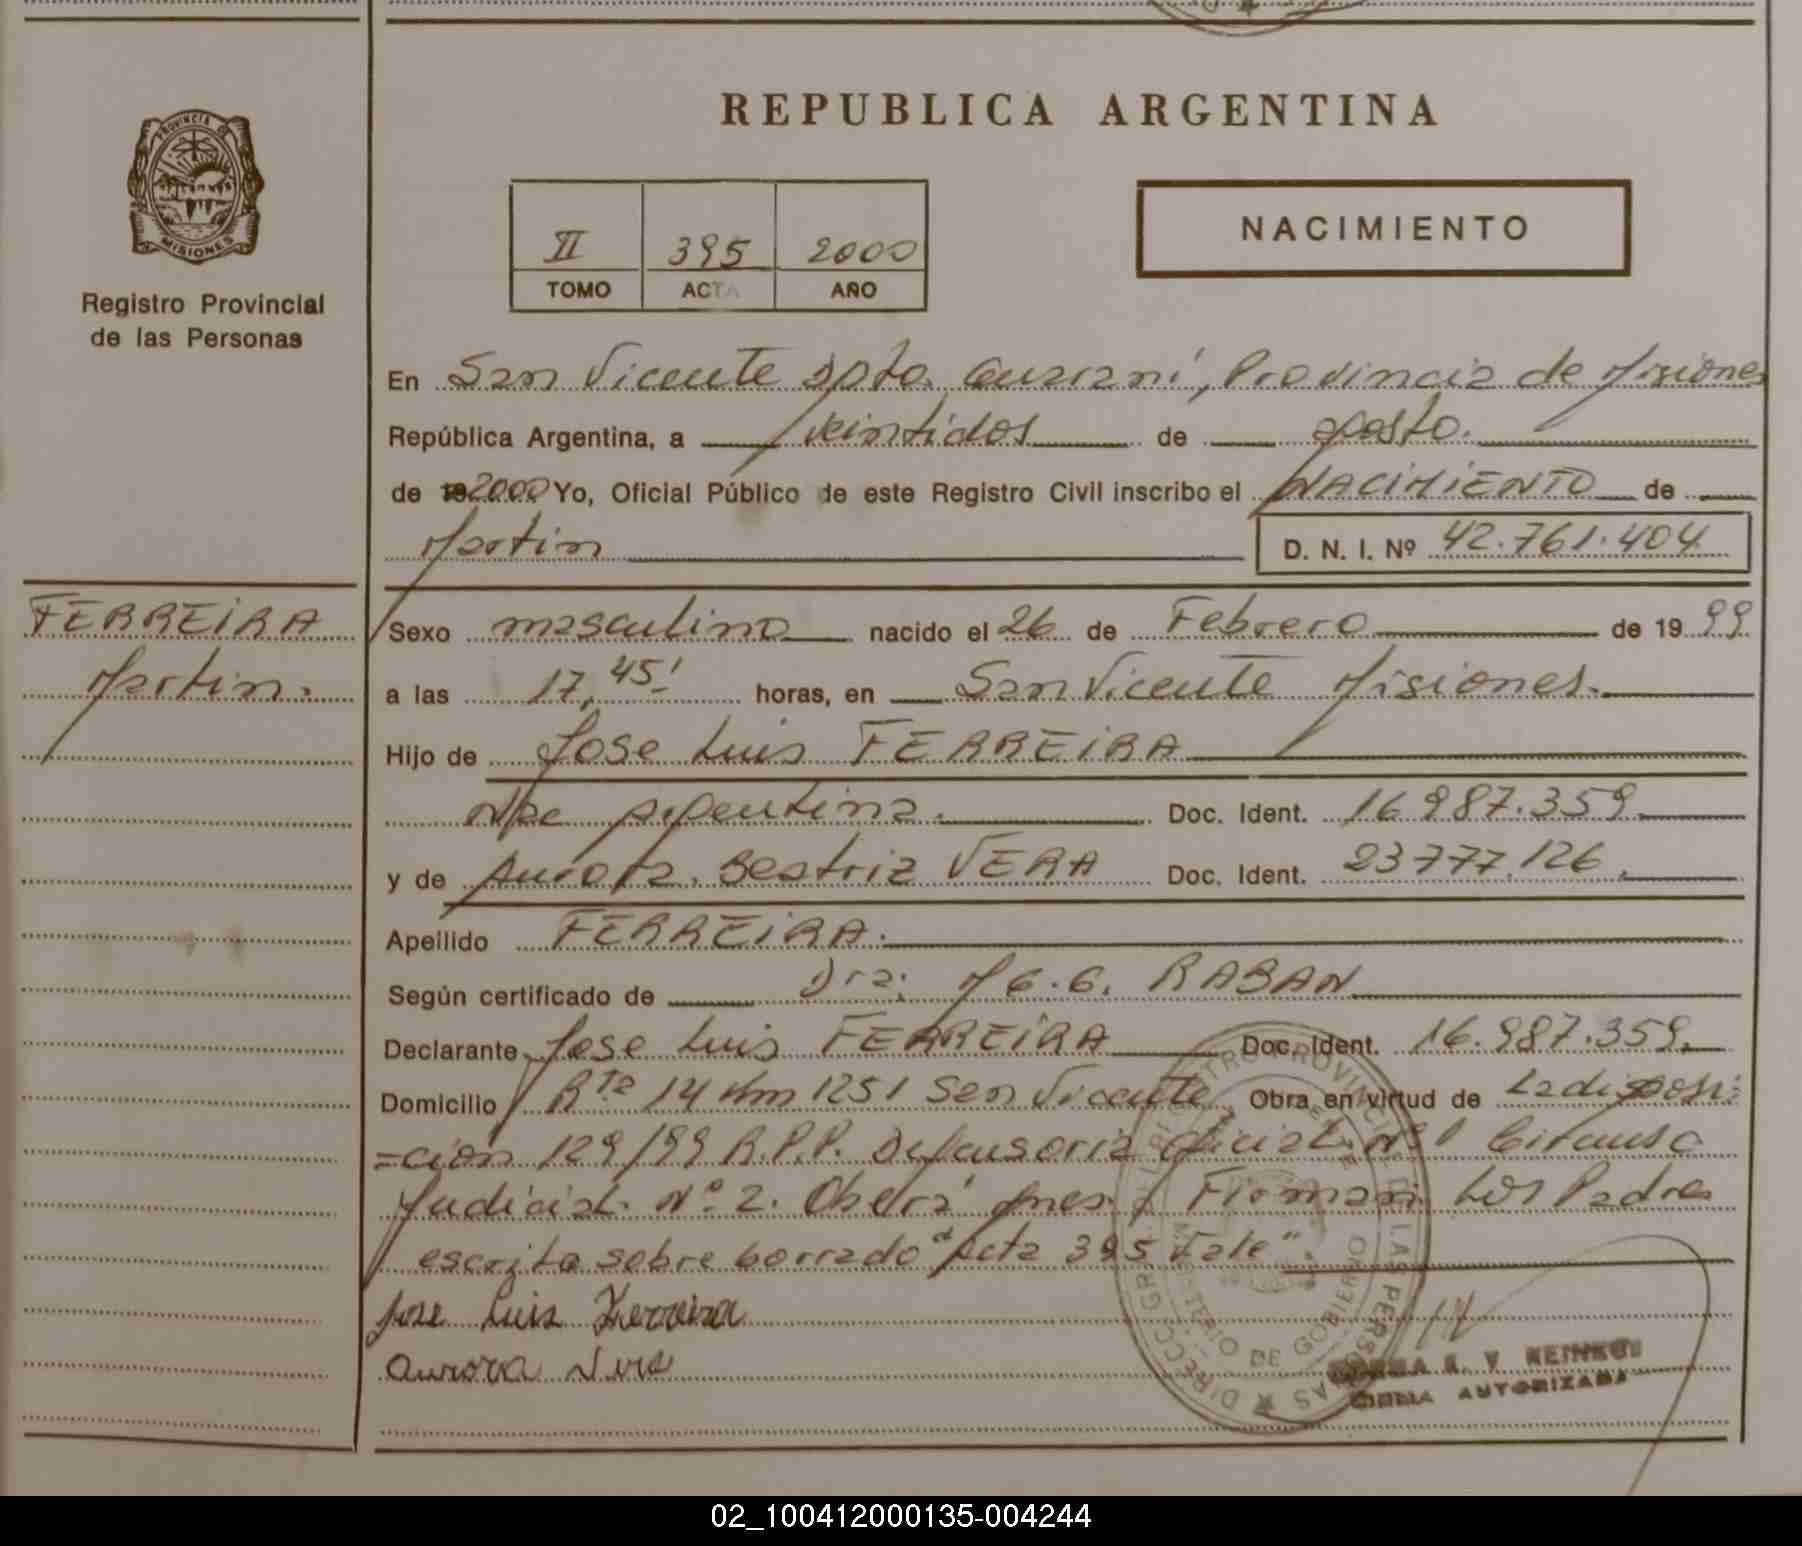 REPUBLICA ARGENTINA
PROVINCIA DE
MISIONES
Registro Provincial
de las Personas
NACIMIENTO
II 395 2000
TOMO ACTA AÑO
En San Vicente Dpto. Guarani, Provincia de Misiones
República Argentina, a veintidos de agosto.
de 19 2000 Yo, Oficial Público de este Registro Civil inscribo el NACIMIENTO de
Martin D. N. I. Nº 42.761.404
FERREIRA
Martin.
Sexo masculino nacido el 26 de Febrero de 19 99
a las 17,45' horas, en San Vicente Misiones.
Hijo de Jose Luis FERREIRA
Nac Argentina. Doc. Ident. 16.987.359.
y de Aurora Beatriz VERA Doc. Ident. 23.777.126.
Apellido FERREIRA.
Según certificado de Dra: M G. G. RABAN
Declarante Jose Luis FERREIRA Doc. Ident. 16.987.359.
Domicilio Rta 14 Km 1251 San Vicente, Obra en virtud de La disposi=
=ción 129/99 R.P.P. Defensoria oficial Nº 1 Circunsc
Judicial Nº 2. Oberá Mnes. Firman Los Padres
escrito sobre borrado "Acta 395 Vale".
Jose Luis Ferreira
Aurora Vera
DIRECC. GRAL. REGISTRO PROVINCIAL DE LAS PERSONAS
MINISTERIO DE GOBIERNO
FIRMA AUTORIZADA
02_100412000135-004244